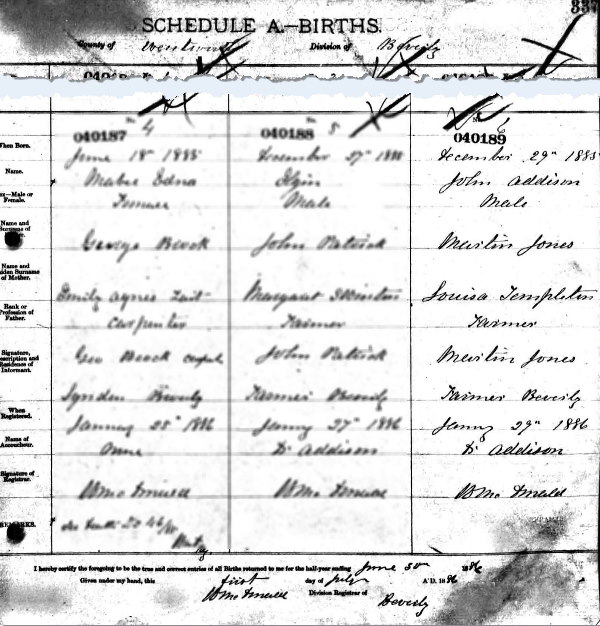 337
SCHEDULE A.—BIRTHS.
County of Wentworth Division of Beverly
040187 4 040188 5 No. 6 040189
When Born. June 18th 1885 December 27th 1885 December 29th 1885
Name. Mabel Edna Elgin John Addison
Sex—Male or Female. Female Male Male
Name and Surname of Father. George Brock John Patrick Martin Jones
Name and Maiden Surname of Mother. Emily Agnes Margaret Louisa Templeton
Rank or Profession of Father. Carpenter Farmer Farmer
Signature, Description and Residence of Informant. Geo Brock John Patrick Martin Jones
Lynden Beverly Farmer Beverly Farmer Beverly
When Registered. January 25th 1886 January 27th 1886 January 29th 1886
Name of Accoucheur. None Dr Addison Dr Addison
Signature of Registrar.
REMARKS.
I hereby certify the foregoing to be the true and correct entries of all Births returned to me for the half-year ending June 30th 1886
Given under my hand, this first day of July A'D. 1886
Division Registrar of Beverly